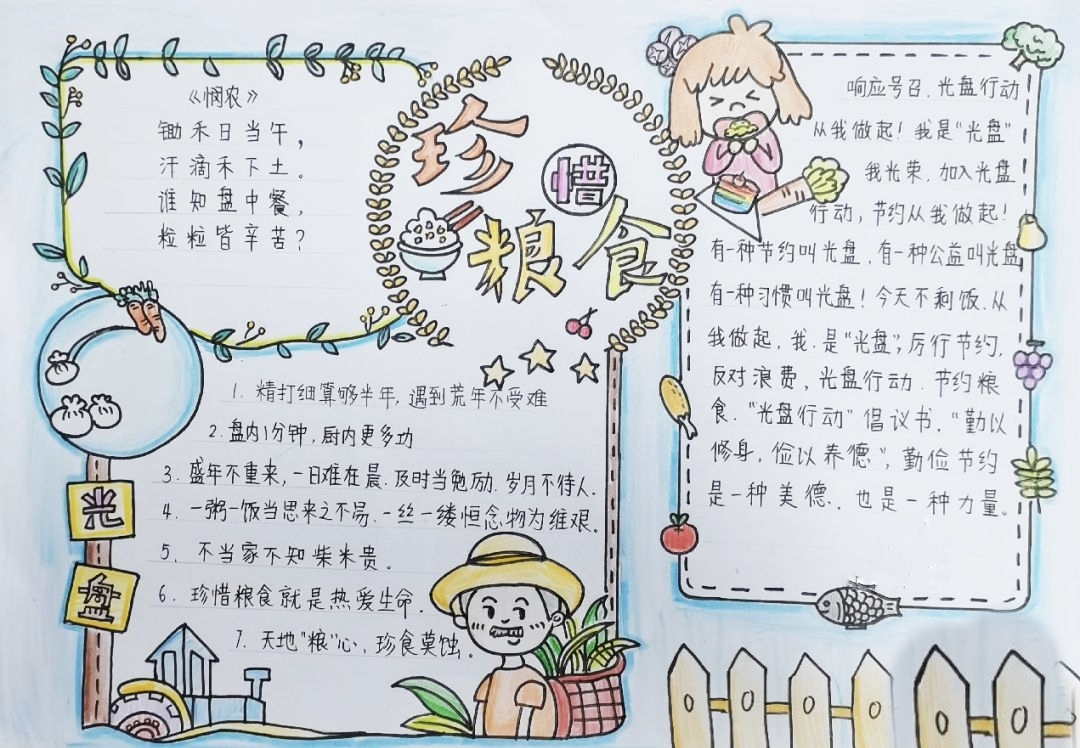 《悯农》
锄禾日当午，
汗滴禾下土。
谁知盘中餐，
粒粒皆辛苦？
珍惜
粮食
响应号召.光盘行动
从我做起！我是“光盘”
我光荣.加入光盘
行动，节约从我做起！
有一种节约叫光盘，有一种公益叫光盘
有一种习惯叫光盘！今天不剩饭.从
我做起，我.是“光盘”，厉行节约，
反对浪费，光盘行动.节约粮
食.“光盘行动”倡议书，“勤以
修身，俭以养德”，勤俭节约
是一种美德.也是一种力量。
1. 精打细算够半年，遇到荒年不受难
2.盘内1分钟，厨内更多功
3.盛年不重来，一日难在晨.及时当勉励.岁月不待人.
4.一粥一饭当思来之不易.一丝一缕恒念物为维艰。
5.不当家不知柴米贵。
6.珍惜粮食就是热爱生命.
7.天地“粮”心，珍食莫蚀.
光
盘